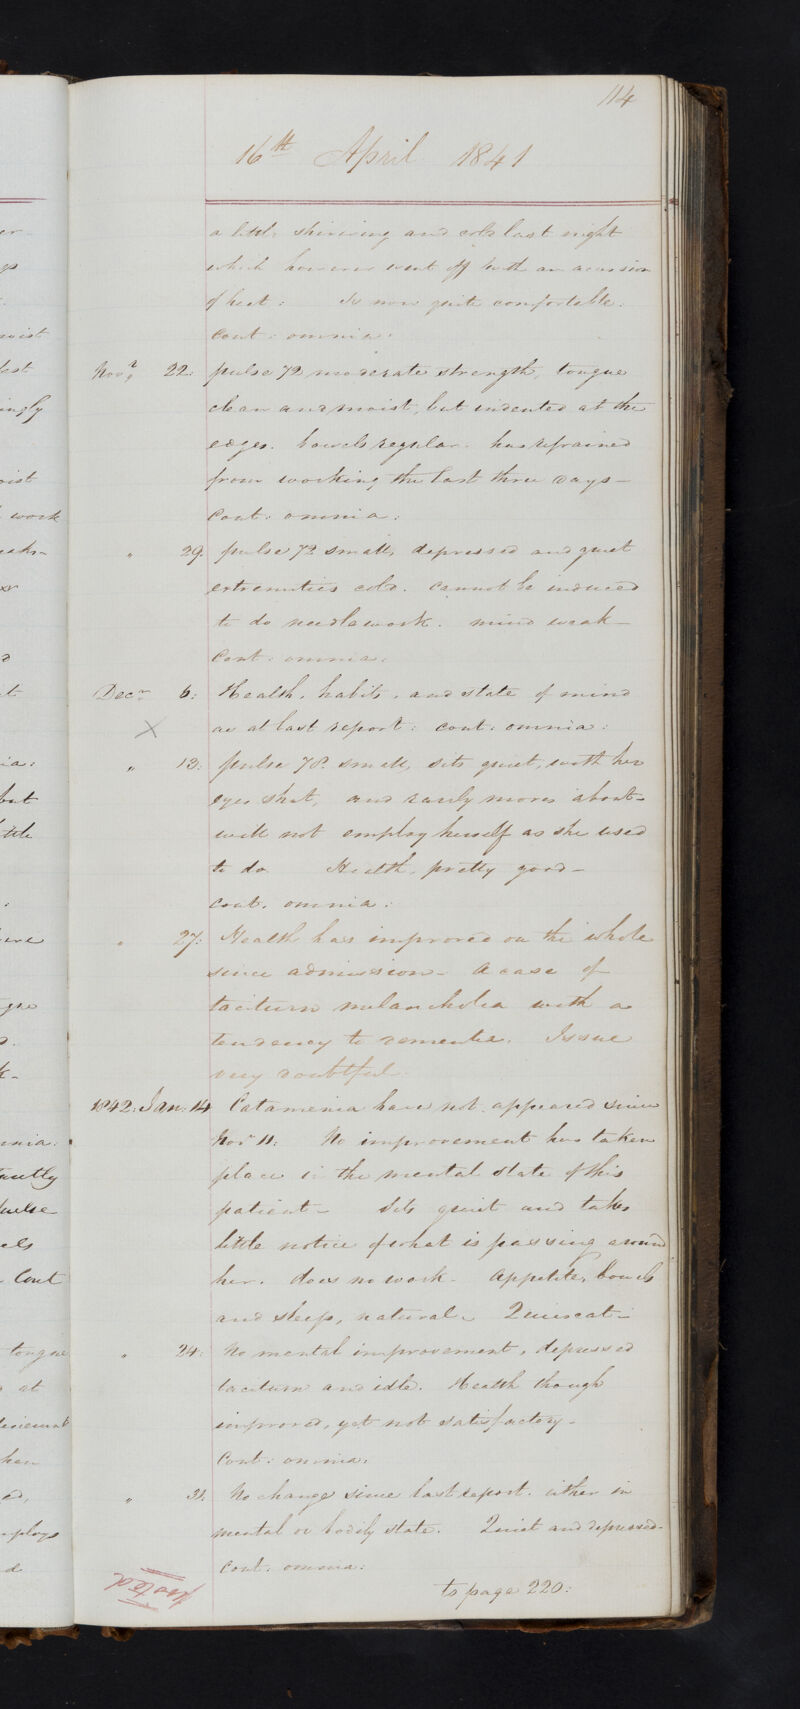 114
16th April 1841
a little shivering and cold last night
which however went off with an accession
of heat: Is now quite comfortable.
Cont: omnia:
Novr 22: pulse 72 moderate strength, tongue
clean and moist, but indented at the
edges. bowels regular. has refrained
from working the last three days—
Cont: omnia:
" 29. pulse 72 small, depressed and quiet
extremities cold. cannot be induced
to do needlework. mind weak—
Cont: omnia:
Decr 6: Health, habits, and state of mind
as at last report: cont: omnia:
" 13: pulse 78. small, sits quiet, with her
eyes shut, and rarely moves about—
will not employ herself as she used
to do. Health, pretty good—
Cont. omnia:
" 27: Health has improved on the whole
since admission— A case of
taciturn melancholia with a
tendency to dementia. Issue
very doubtful.
1842: Jan: 14 Catamenia have not appeared since
Novr 11: No improvement has taken
place in the mental state of this
patient— Sits quiet and takes
little notice of what is passing around
her. does no work. Appetite, bowels
and sleep, natural.
" 24: No mental improvement, depressed
taciturn and idle. Health though
improved, yet not satisfactory—
Cont: omnia:
" 31: No change since last report. either in
mental or bodily state. Quiet and depressed—
Cont: omnia:
to page 220:
posted